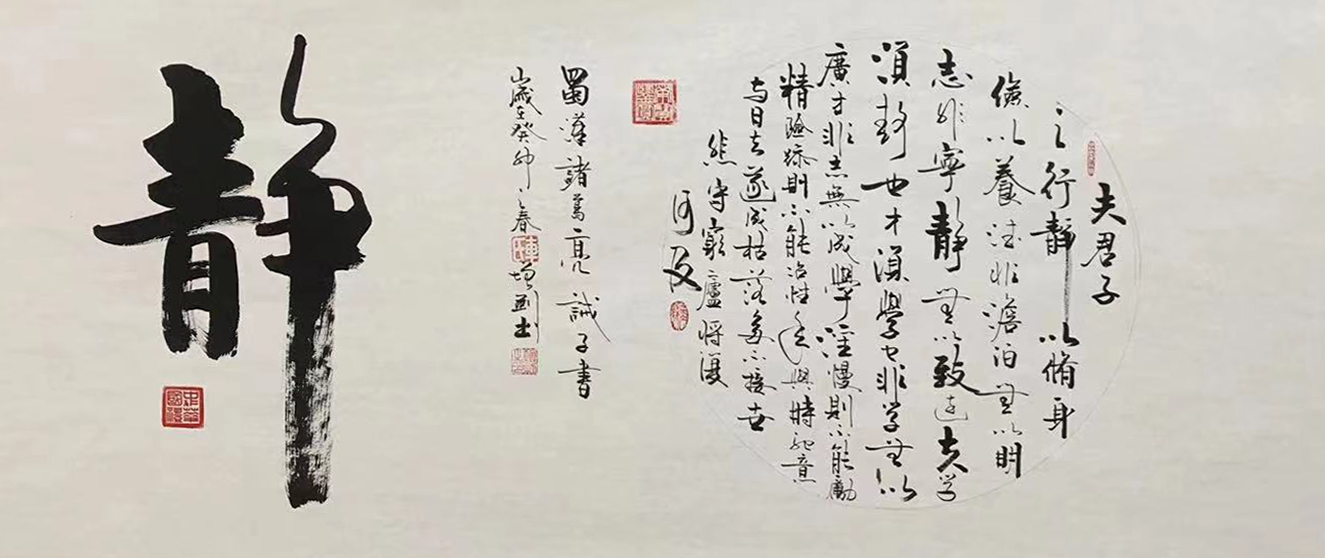 夫君子
之行静以脩身
儉以養德非澹泊無以明
志非寧靜無以致遠夫学
須静也才須學也非学無以
廣才非志無以成學淫慢則不能勵
精險躁則不能冶性年與時馳意
与日去遂成枯落多不接世
悲守窮廬將復
何及
蜀漢諸葛亮誡子書
歲在癸卯之春增书
静